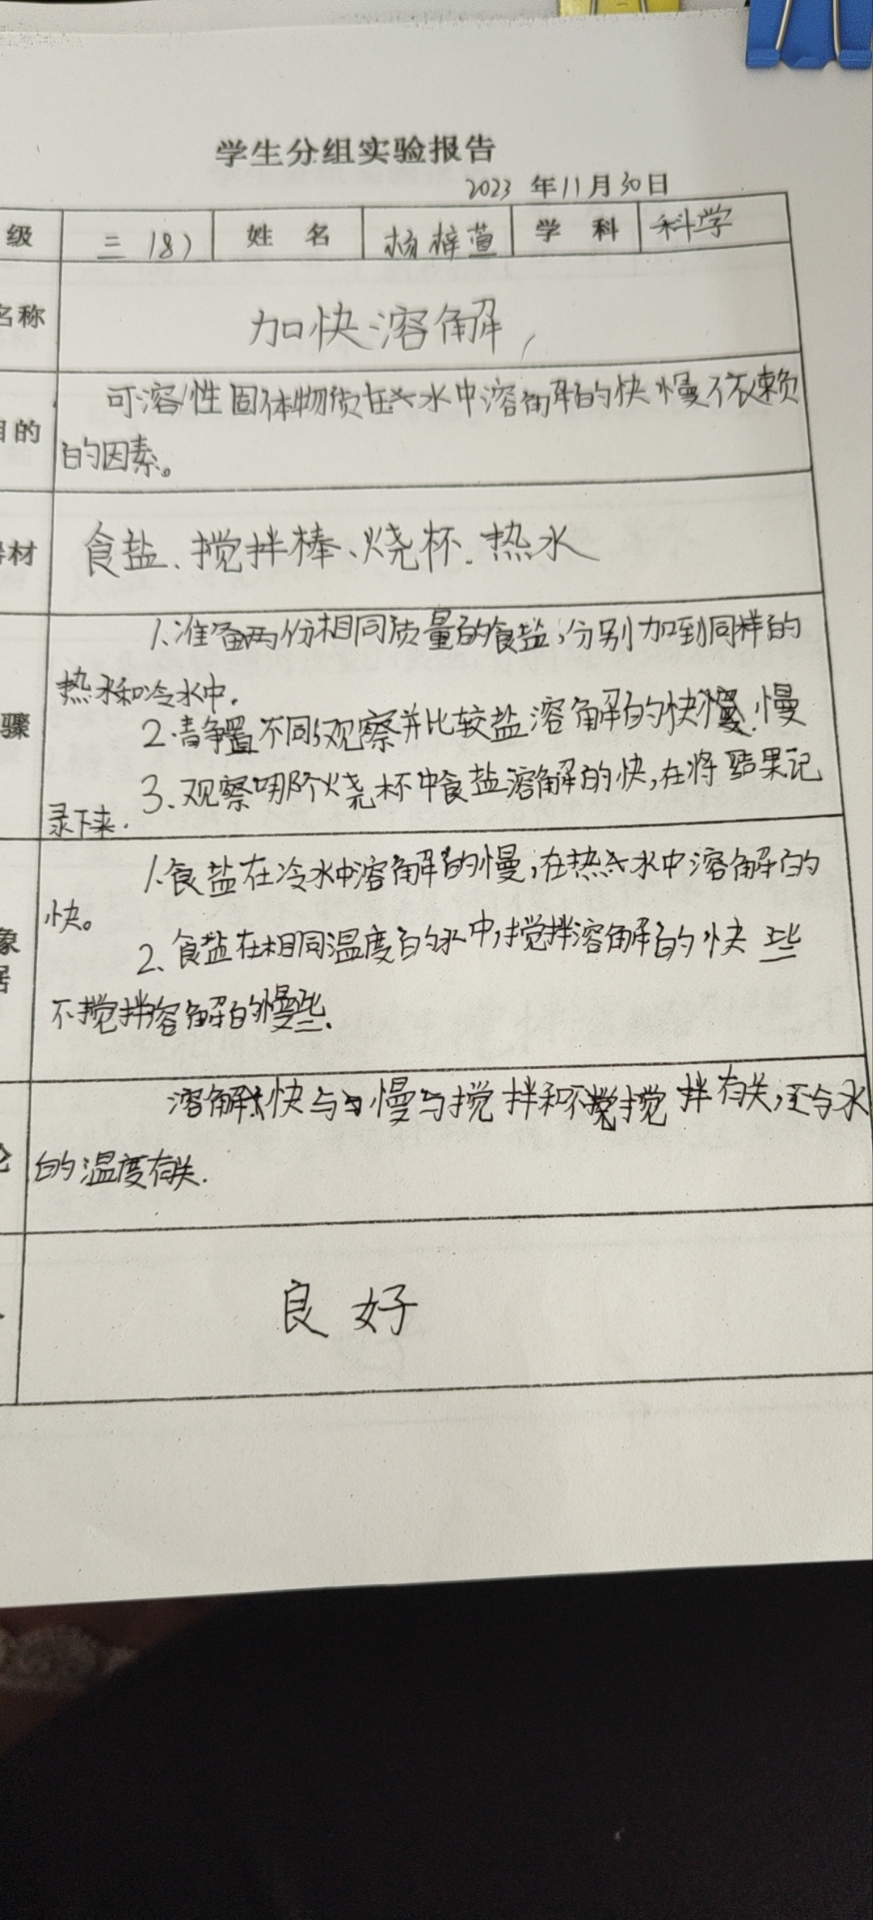 学生分组实验报告
2023 年11月30日
级 三(8) 姓 名 杨梓萱 学 科 科学
名称 加快溶解
目的 可溶性固体物质在水中溶解的快慢不依赖
的因素。
材 食盐、搅拌棒、烧杯.热水
1.准备两份相同质量的食盐,分别加到同样的
热水和冷水中.
骤 2.静置不同,观察并比较盐溶解的快慢.慢
3.观察哪个烧杯中食盐溶解的快,在将结果记
录下来.
1.食盐在冷水中溶解的慢,在热水中溶解的
快。
象 2.食盐在相同温度的水中,搅拌溶解的快些
不搅拌溶解的慢些.
溶解快与慢与搅拌和不搅拌有关,还与水
论 的温度有关.
良好